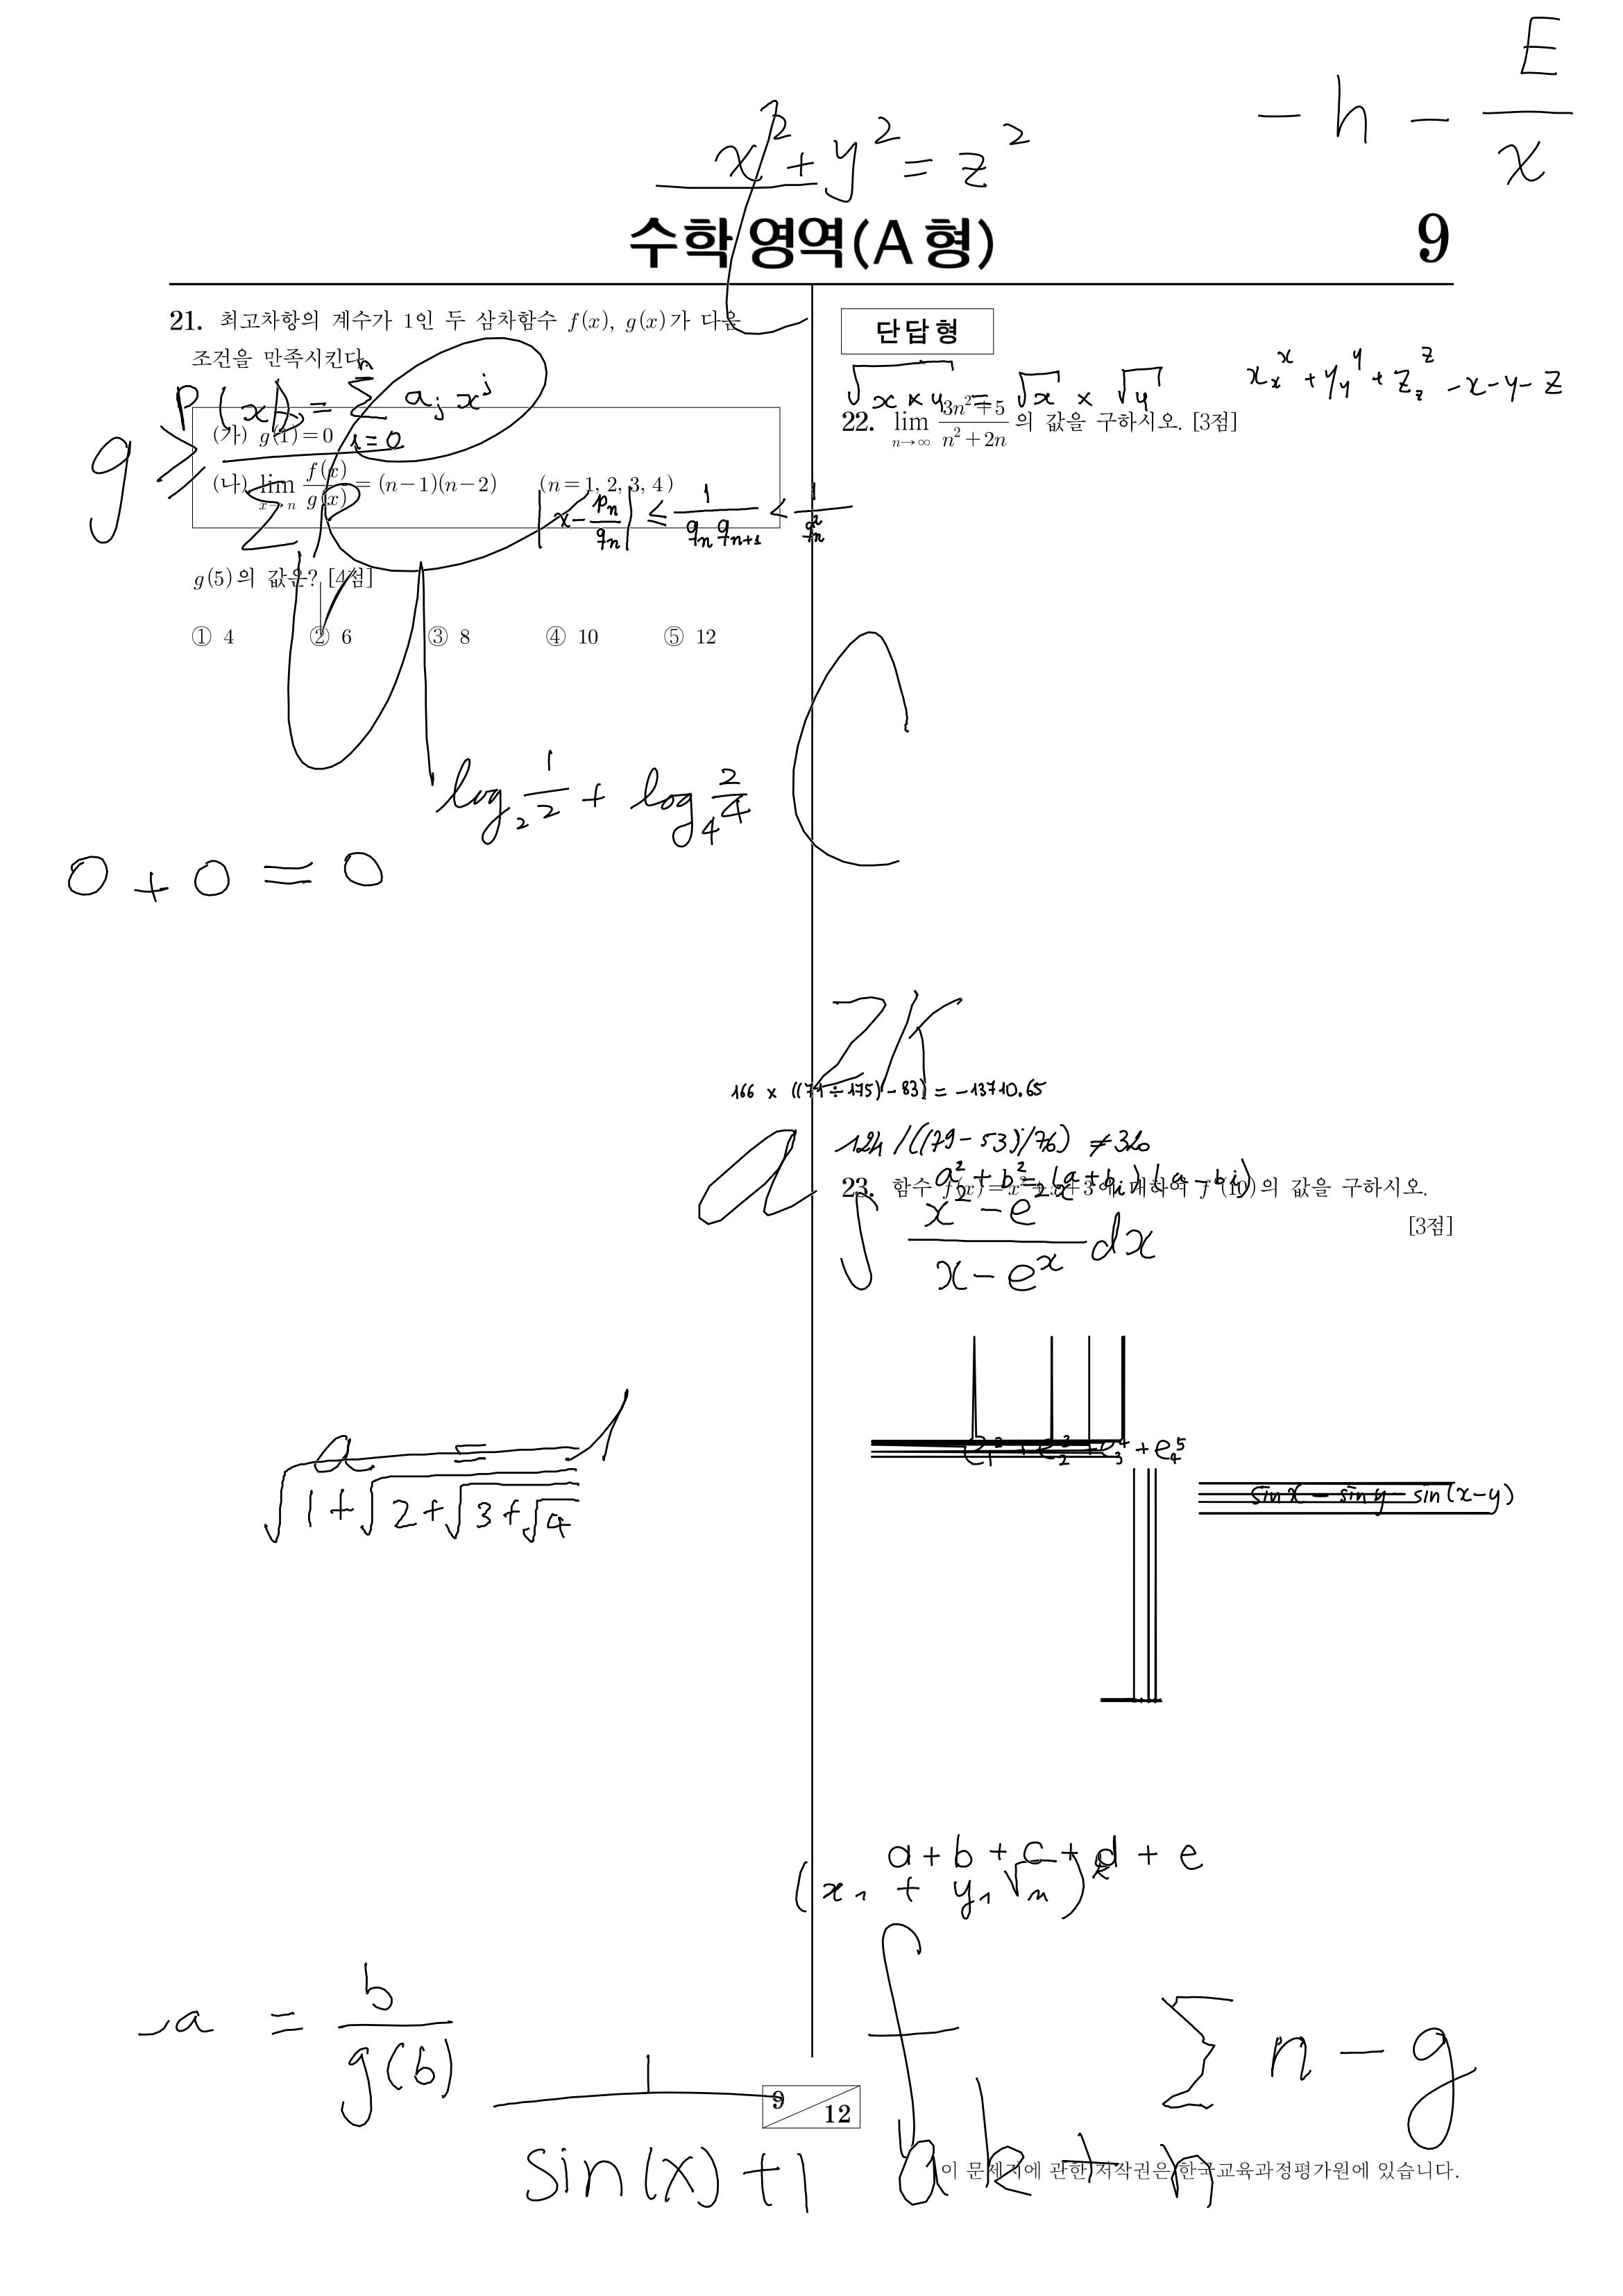 E
- h - —
x
x² + y² = z²
수학 영역(A 형)
9
21. 최고차항의 계수가 1인 두 삼차함수 f(x), g(x)가 다음
조건을 만족시킨다.
P(x) = Σ a_j x^j
n
i=0
g ≥
(가) g(1)=0
(나) lim_{x→n} f(x)/g(x) = (n-1)(n-2) (n=1, 2, 3, 4)
|x - p_n/q_n| ≤ 1/(q_n q_{n+1}) < 1/q_n²
g(5)의 값은? [4점]
① 4 ② 6 ③ 8 ④ 10 ⑤ 12
log₂ 1/2 + log₄ 2/4
0 + 0 = 0
a =
√(1+√(2+√(3+√4)))
-a = b/g(b)
1/(sin(x)+1)
단답형
√(x × y) = √x × √y
x_x^x + y_y^y + z_z^z - x - y - z
22. lim_{n→∞} (3n²+5)/(n²+2n) 의 값을 구하시오. [3점]
166 × ((71÷175)-83) = -13710.65
124/((79-53)/76) ≠ 320
a² + b² = (a+bi)(a-bi)
23. 함수 f(x)=x²+x+3에 대하여 f′(10)의 값을 구하시오.
[3점]
∫ (x²-e^{2x})/(x-e^x) dx
e_1^2 + e_2^3 + e_3^4 + e_4^5
sin x - sin y - sin(x-y)
a + b + c + d + e
(x₁ + y₁√n)^k
f
Σ n - g
a k + n
9
12
이 문제지에 관한 저작권은 한국교육과정평가원에 있습니다.